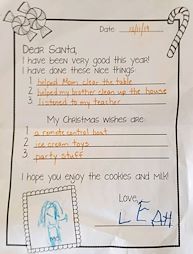 Date 12/11/19
Dear Santa,
I have been very good this year!
I have done these nice things
1 helped Mom clear the table
2 helped my brother clean up the house
3 listened to my teacher
My Christmas wishes are:
1 a remote control boat
2 ice cream toys
3 party stuff
I hope you enjoy the cookies and milk!
Love,
LEAH